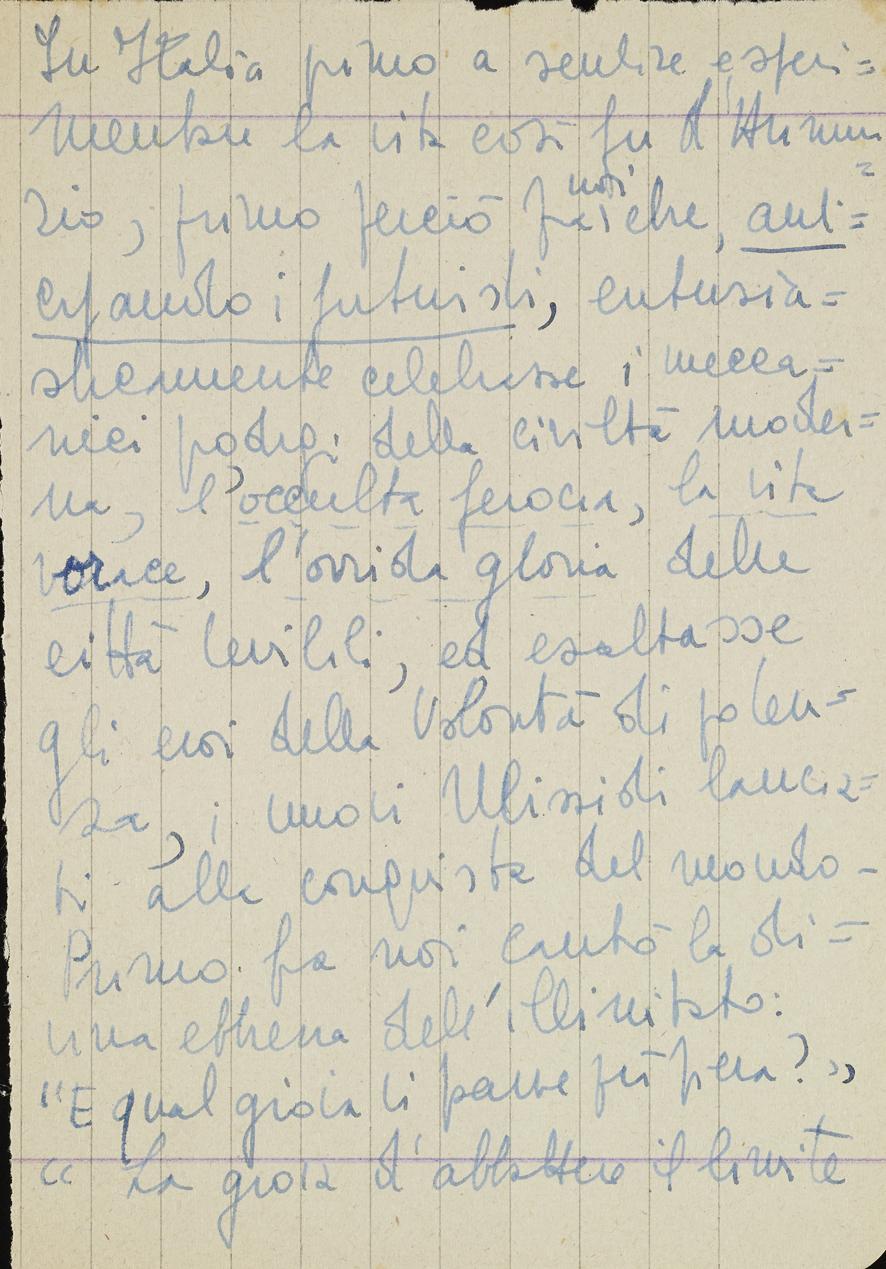 In Italia primo a sentire esperi=
mentare la vita così fu d'Annun
=
zio, primo perciò fra noi che, anti=
cipando i futuristi, entusia=
sticamente celebrasse i mecca=
nici prodigi della civiltà moder=
na, l'occulta ferocia, la vita
vorace, l'orrida gloria delle
città terribili, ed esaltasse
gli eroi della Volontà di poten=
za, i nuovi Ulissidi lancia=
ti alla conquista del mondo -
Primo fra noi cantò la di=
vina ebbrezza dell'illimitato:
"E qual gioia ti parve più piena?"
" La gioia d'abbattere il limite